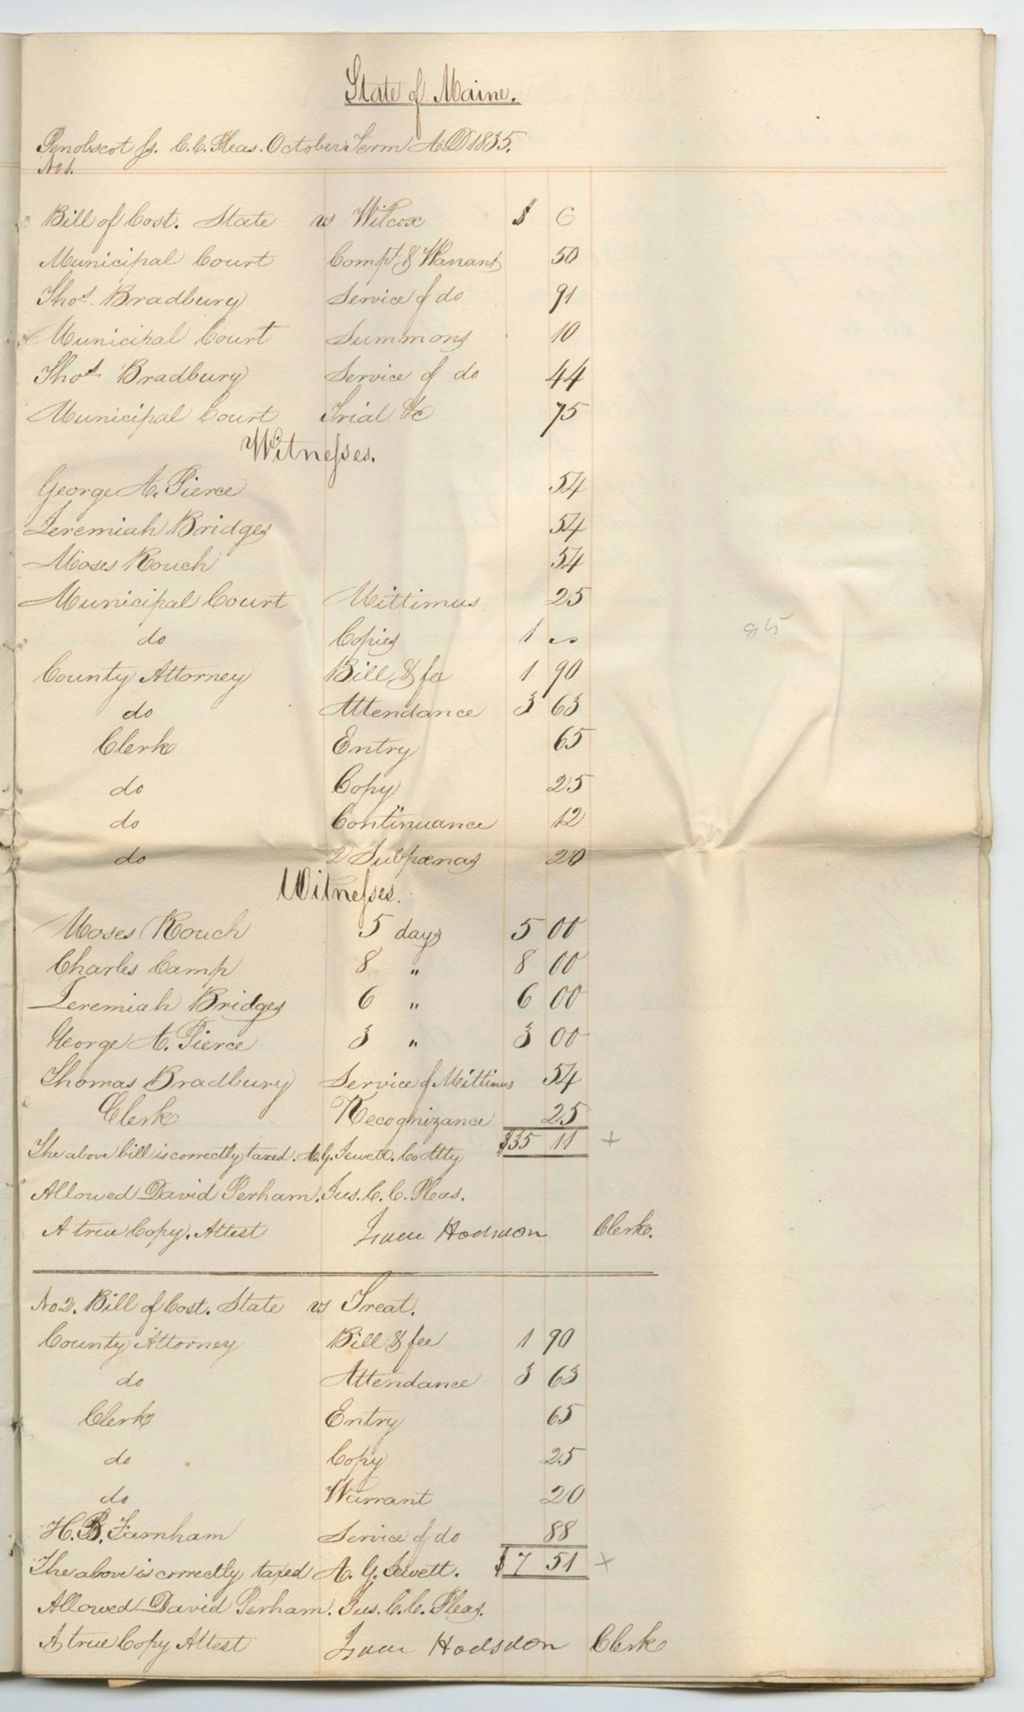 State of Maine.
Penobscot ss. C. C. Pleas. October Term A.D. 1835.
No 1.
Bill of Cost. State vs Wilcox $ C
Municipal Court Compt & Warrant 50
Thos. Bradbury Service of do 91
Municipal Court Summons 10
Thos. Bradbury Service of do 44
Municipal Court Trial &c 75
Witnesses.
George A. Pierce 54
Jeremiah Bridges 54
Moses Rouch 54
Municipal Court Mittimus 25
do Copies 1 "
85
County Attorney Bill & fee 1 90
do Attendance 3 63
Clerk Entry 65
do Copy 25
do Continuance 12
do 2 Subpœnas 20
Witnesses.
Moses Rouch 5 days 5 00
Charles Camp 8 " 8 00
Jeremiah Bridges 6 " 6 00
George A. Pierce 3 " 3 00
Thomas Bradbury Service of Mittimus 54
Clerk Recognizance 25
The above bill is correctly taxed. A. G. Jewett. Co Atty $35 11 +
Allowed David Perham. Jus. C. C. Pleas.
A true Copy. Attest Isaac Hodsdon Clerk.
No 2. Bill of Cost. State vs Treat.
County Attorney Bill & fee 1 90
do Attendance 3 63
Clerk Entry 65
do Copy 25
do Warrant 20
H. B. Farnham Service of do 88
The above is correctly taxed A. G. Jewett. $7 51 +
Allowed David Perham. Jus. C. C. Pleas.
A true Copy Attest Isaac Hodsdon Clerk